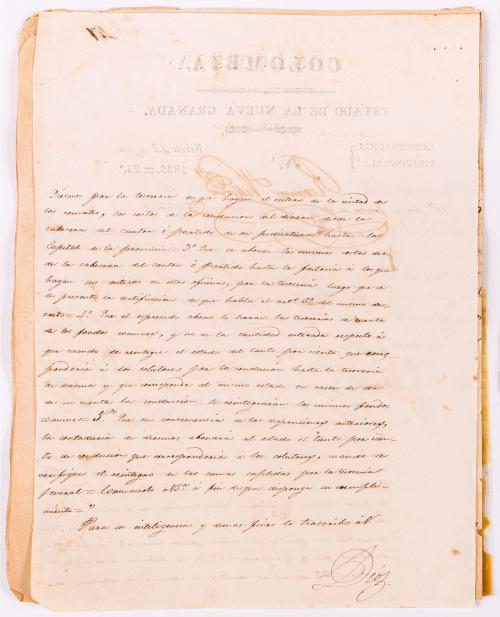 COLOMBIA.
ESTADO DE LA NUEVA GRANADA.
GOBERNACION PROVINCIAL
Neiva
Nº
1833 = 23º
Diezmos por la tesoreria en que hagan el entero de la mitad de
los remates, los costos de la conduccion del dinero desde la
cabecera del canton ó partido de su hasta la
Capital de la provincia = 3º Que se abonen los mismos costos des-
de la cabecera del canton ó partido hasta la á los que
hagan sus enteros en esas oficinas, por la tesoreria luego que se
le presente la certificacion de que habla el artº 6º del mismo de-
creto = 4º Que el espresado abono lo harán las tesorerias de cuenta
de los fondos comunes, y no de la cantidad enterada respecto á
que cuando se reintegre el estado del tanto por ciento que corres-
ponderia á los colectores por la conduccion hasta la tesoreria
de diezmos y que corresponde al mismo estado en razon de ser
de su cuenta la conduccion se reintegrarán los mismos fondos
comunes 5º Que en consecuencia de las disposiciones anteriores,
la contaduria de diezmos abonará al estado el tanto por cien-
to de conducion que corresponderia á los colectores, cuando se
verifique el reintegro de las sumas suplidas por la tesoreria
general = Comunicolo á V. á fin de que disponga su cumpli-
miento = "
Para su inteligencia y demas fines lo transcribo á V.